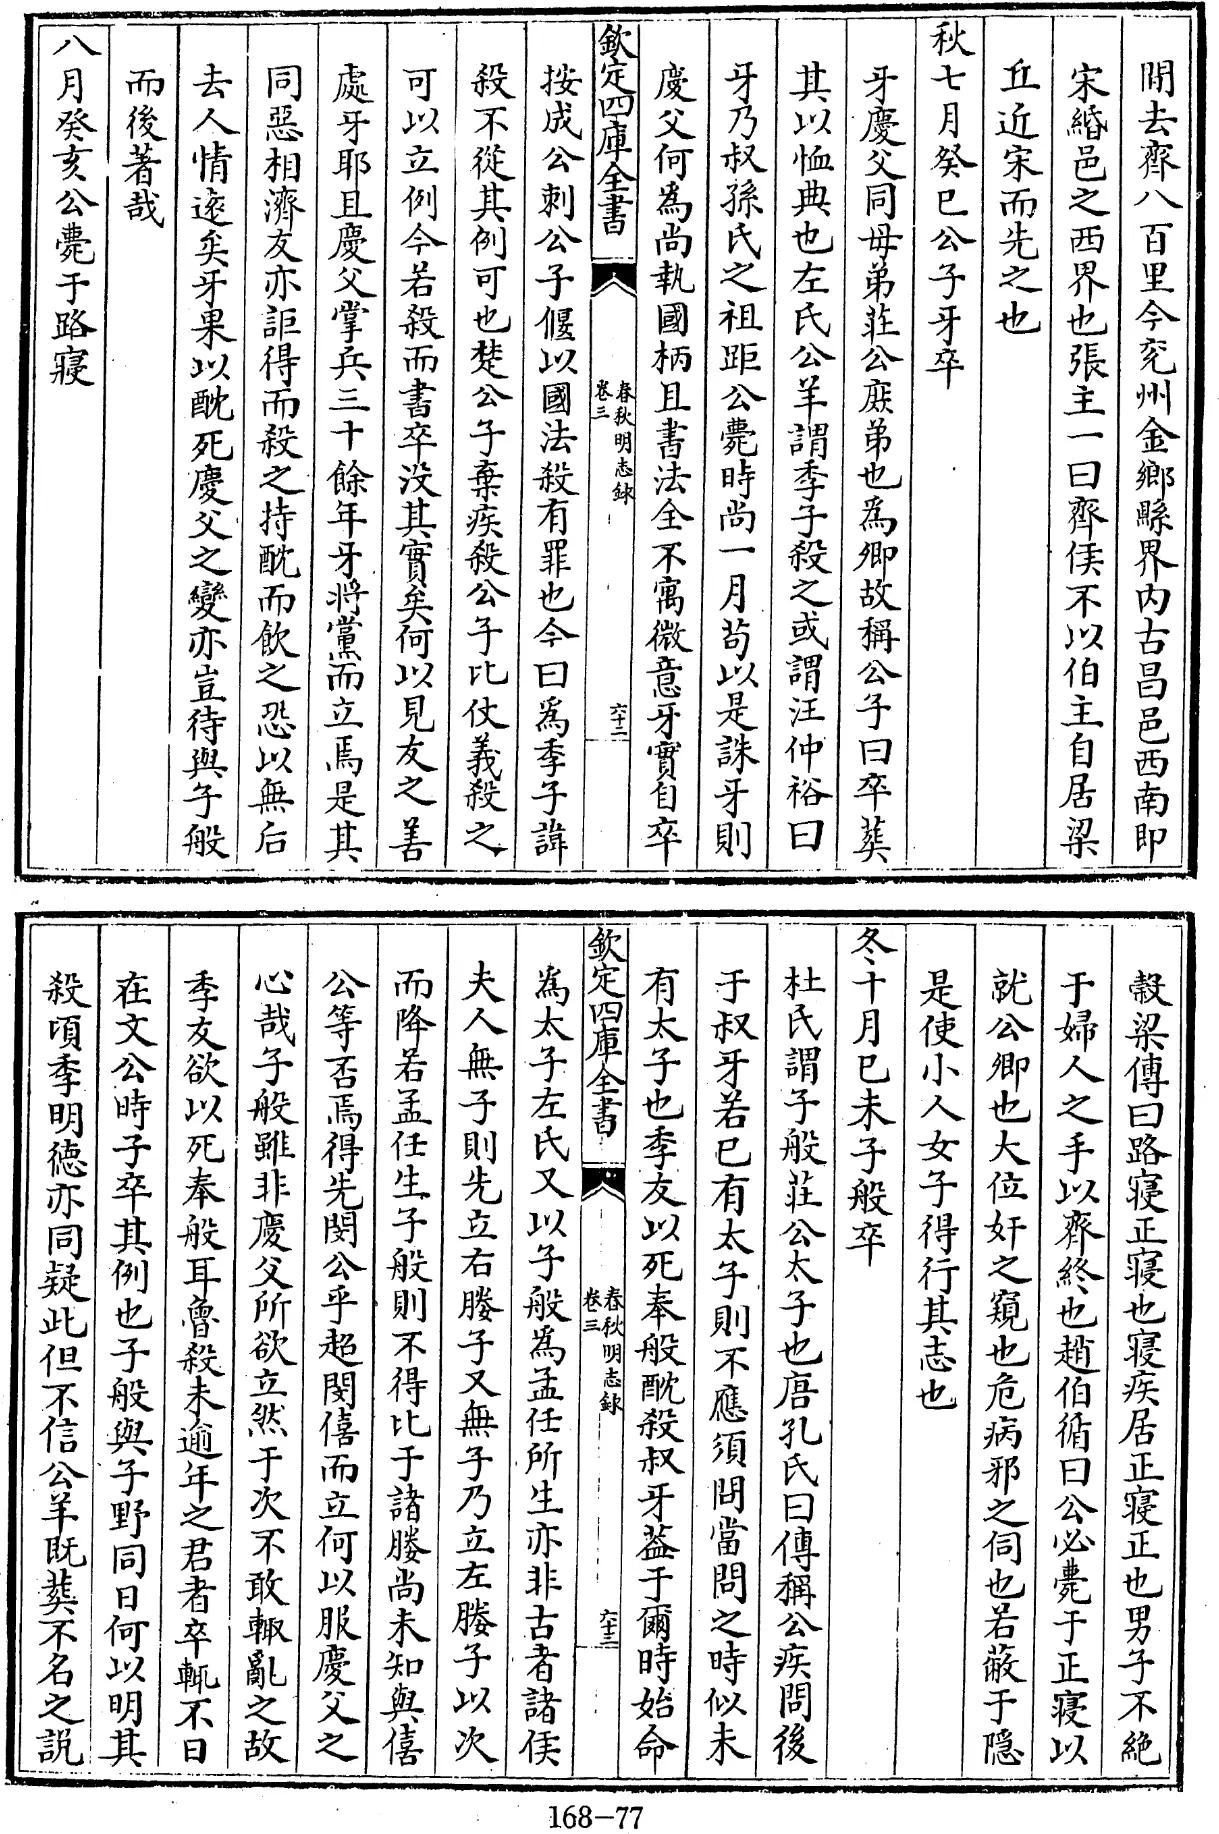 間去齊八百里今兖州金鄉縣界内古昌邑西南即
宋緡邑之西界也張主一曰齊侯不以伯主自居梁
丘近宋而先之也
秋七月癸巳公子牙卒
牙慶父同母弟莊公庶弟也為卿故稱公子曰卒葬
其以恤典也左氏公羊謂季子殺之或謂汪仲裕曰
牙乃叔孫氏之祖距公薨時尚一月苟以是誅牙則
慶父何為尚執國柄且書法全不寓微意牙實自卒
欽定四庫全書
春秋明志録
卷三
六十二
按成公刺公子偃以國法殺有罪也今曰為季子諱
殺不從其例可也楚公子棄疾殺公子比仗義殺之
可以立例今若殺而書卒没其實矣何以見友之善
處牙耶且慶父掌兵三十餘年牙將黨而立焉是其
同惡相濟友亦詎得而殺之持酖而飲之恐以無后
去人情逺矣牙果以酖死慶父之變亦豈待與子般
而後著哉
八月癸亥公薨于路寢
穀梁傳曰路寢正寢也寢疾居正寢正也男子不絶
于婦人之手以齊終也趙伯循曰公必薨于正寢以
就公卿也大位奸之窺也危病邪之伺也若蔽于隠
是使小人女子得行其志也
冬十月己未子般卒
杜氏謂子般莊公太子也唐孔氏曰傳稱公疾問後
于叔牙若已有太子則不應須問當問之時似未
有太子也季友以死奉般酖殺叔牙葢于爾時始命
欽定四庫全書
春秋明志録
卷三
六十三
為太子左氏又以子般為孟任所生亦非古者諸侯
夫人無子則先立右媵子又無子乃立左媵子以次
而降若孟任生子般則不得比于諸媵尚未知與僖
公等否焉得先閔公乎超閔僖而立何以服慶父之
心哉子般雖非慶父所欲立然于次不敢輙亂之故
季友欲以死奉般耳魯殺未逾年之君者卒輒不日
在文公時子卒其例也子般與子野同日何以明其
殺頃季明徳亦同疑此但不信公羊既葬不名之説
168-77